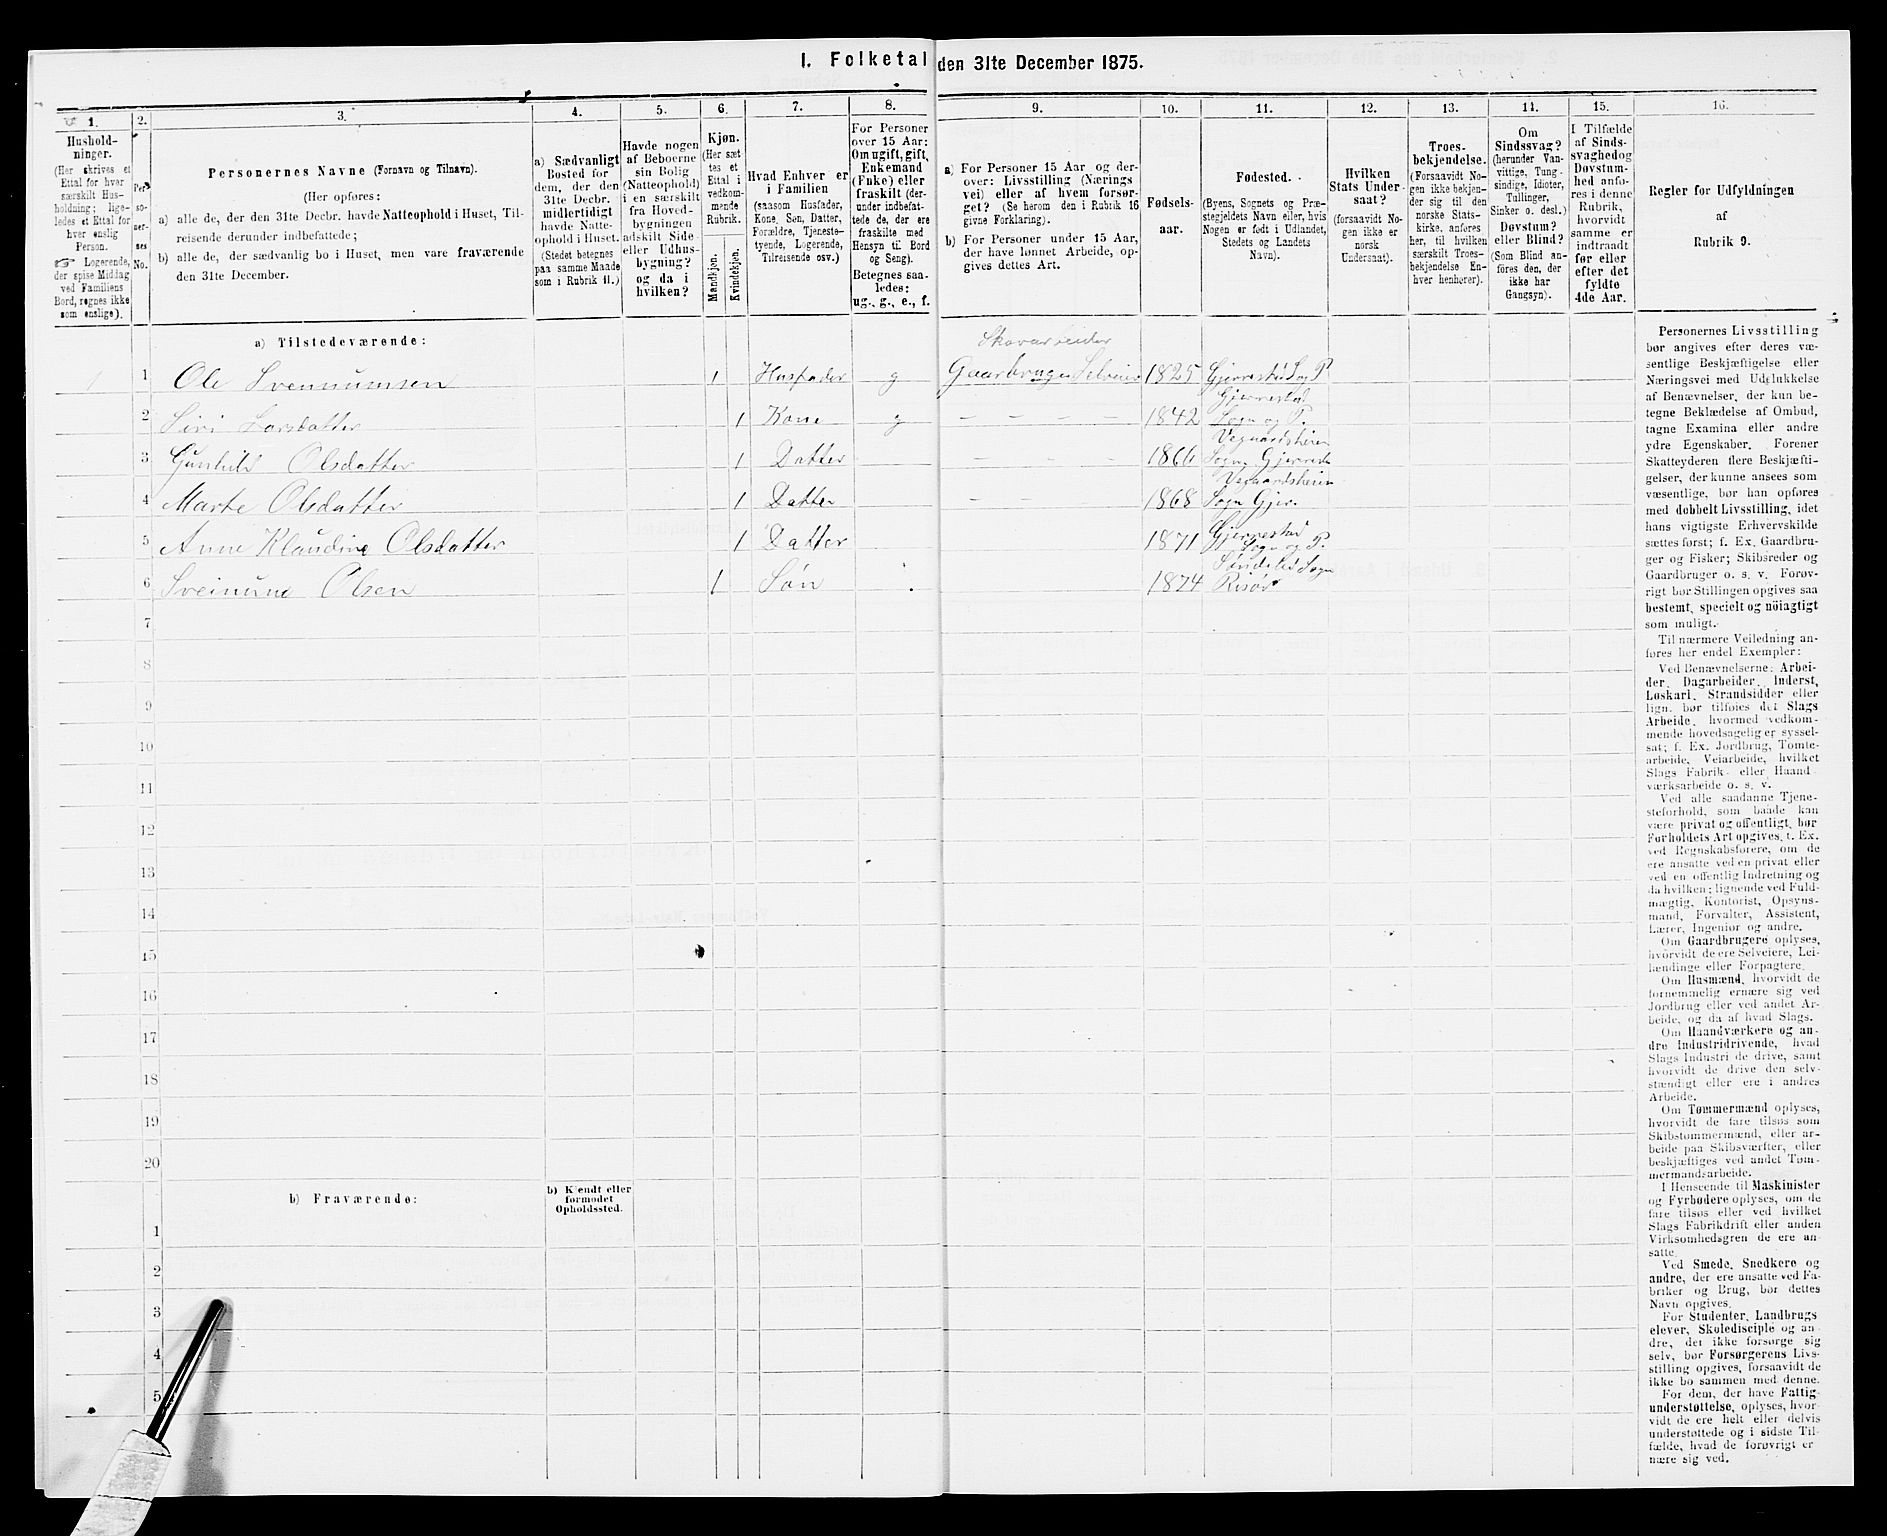 1. Folketal den 31te December 1875.
1.
Hushold-
ninger.
(Her skrives et
Ettal for hver
særskilt Hus-
holdning; lige-
ledes et Ettal for
hver enslig
Person.
☞ Logerende,
der spise Middag
ved Familiens
Bord, regnes ikke
som enslige).
2.
Per-
so-
ner-
nes
No.
3.
Personernes Navne (Fornavn og Tilnavn).
(Her opføres:
a) alle de, der den 31te Decbr. havde Natteophold i Huset, Til-
reisende derunder indbefattede;
b) alle de, der sædvanlig bo i Huset, men vare fraværende
den 31te December.
4.
a) Sædvanligt
Bosted for
dem, der den
31te Decbr.
midlertidigt
havde Natte-
ophold i Huset.
(Stedet betegnes
paa samme Maade
som i Rubrik 11.)
5.
Havde nogen
af Beboerne
sin Bolig
(Natteophold)
i en særskilt
fra Hoved-
bygningen
adskilt Side-
eller Udhus-
bygning?
og da i
hvilken?
6.
Kjøn.
(Her sæt
tes et
Ettal i
vedkom-
mende
Rubrik.
Mandkjøn.
Kvindekjøn.
7.
Hvad Enhver er
i Familien
(saasom Husfader,
Kone, Søn, Datter,
Forældre, Tjeneste-
tyende, Logerende,
Tilreisende osv.)
8.
For Personer
over 15 Aar:
Om ugift, gift,
Enkemand
(Enke) eller
fraskilt (der-
under indbefat-
tede de, der ere
fraskilte med
Hensyn til Bord
og Seng).
Betegnes saa-
ledes:
ug., g., e., f.
9.
a) For Personer 15 Aar og der-
over: Livsstilling (Nærings
vei) eller af hvem forsør-
get? (Se herom den i Rubrik 16
givne Forklaring).
b) For Personer under 15 Aar,
der have lønnet Arbeide, op-
gives dettes Art.
10.
Fødsels-
aar.
11.
Fødested.
(Byens, Sognets og Præ-
stegjeldets Navn eller, hvis
Nogen er født i Udlandet,
Stedets og Landets
Navn).
12.
Hvilken
Stats Under-
saat?
(forsaavidt No-
gen ikke er
norsk
Undersaat).
13.
Troes-
bekjendelse.
(Forsaavidt No-
gen ikke bekjen-
der sig til den
norske Stats-
kirke, anføres
her, til hvilken
særskilt Troes-
bekjendelse En-
hver henhører).
14.
Om
Sindssvag?
(herunder Van-
vittige, Tung-
sindige, Idioter,
Tullinger,
Sinker o. desl.)
Døvstum?
eller Blind?
(Som Blind an-
føres den, der
ikke har
Gangsyn).
15.
I Tilfælde
af Sinds-
svaghed og
Døvstum-
hed anfø-
res i denne
Rubrik,
hvorvidt
samme er
indtraadt
før eller
efter det
fyldte
4de Aar.
16.
Regler for Udfyldningen
af
Rubrik 9.
a) Tilstedeværende:
Skovarbeider
1 1 Ole Svennumsen 1 Husfader g Gaarbruger Selveier 1825 Gjerrestad S og P
Gjerrestad
2 Siri Larsdatter 1 Kone g – – – 1842 Sogn og P.
Vegaardsheien
3 Gunhild Olsdatter 1 Datter – – – 1866 Sogn Gjerrestd
Vegaardsheien
4 Marte Olsdatter 1 Datter – – 1868 Sogn Gjer.
Gjerrestad
5 Anne Klaudine Olsdatter 1 Datter 1871 Sogn og P.
Søndelis Sogn
6 Sveinunc Olsen 1 Søn 1874 Risør
7
8
9
10
11
12
13
14
15
16
17
18
19
20
b) Fraværende:
b) Kjendt eller
formodet
Opholdssted.
1
2
3
4
5
Personernes Livsstilling
bør angives efter deres væ-
sentlige Beskjæftigelse eller
Næringsvei med Udelukkelse
af Benævnelser, der kun be-
tegne Beklædelse af Ombud,
tagne Examina eller andre
ydre Egenskaber. Forener
Skatteyderen flere Beskjæfti-
gelser, der kunne ansees som
væsentlige, bør han opføres
med dobbelt Livsstilling, idet
hans vigtigste Erhvervskilde
sættes først; f. Ex. Gaardbru-
ger og Fisker; Skibsreder og
Gaardbruger o. s. v. Forøv-
rigt bør Stillingen opgives saa
bestemt, specielt og nöiagtigt
som muligt.
Til nærmere Veiledning an-
føres her endel Exempler:
Ved Benævnelserne: Arbei-
der, Dagarbeider, Inderst,
Løskarl, Strandsidder eller
lign. bør tilføies det Slags
Arbeide, hvormed vedkom-
mende hovedsagelig er syssel-
sat; f. Ex. Jordbrug, Tomte-
arbeide, Veiarbeide, hvilket
Slags Fabrik- eller Haand-
værksarbeide o. s. v.
Ved alle saadanne Tjene-
steforhold, som baade kan
være privat og offentligt, bør
Forholdets Art opgives, t. Ex.
ved Regnskabsførere, om de
ere ansatte ved en privat eller
ved en offentlig Indretning og
da hvilken; lignende ved Fuld-
mægtig, Kontorist, Opsyns-
mand, Forvalter, Assistent,
Lærer, Ingeniør og andre.
Om Gaardbrugere oplyses,
hvorvidt de ere Selveiere, Lei-
lændinge eller Forpagtere.
Om Husmænd, hvorvidt de
fornemmelig ernære sig ved
Jordbrug eller ved andet Ar-
beide, og da af hvad Slags.
Om Haandværkere og an-
dre Industridrivende, hvad
Slags Industri de drive, samt
hvorvidt de drive den selv-
stændigt eller ere i andres
Arbeide.
Om Tømmermænd oplyses,
hvorvidt de fare tilsøs som
Skibstømmermænd, eller ar-
beide paa Skibsværfter, eller
beskjæftiges ved andet Tøm-
mermandsarbeide.
I Henseende til Maskinister
og Fyrbødere oplyses, om de
fare tilsøs eller ved hvilket
Slags Fabrikdrift eller anden
Virksomhedsgren de ere an-
satte.
Ved Smede, Snedkere og
andre, der ere ansatte ved Fa-
briker og Brug, bør dettes
Navn opgives.
For Studenter, Landbrugs
elever, Skoledisciple og an-
dre, det ikke forsørge sig
selv, bør Forsørgerens Livs-
stilling opgives, forsaavidt de
ikke bo sammen med denne.
For dem, der have Fattig-
understøttelse, oplyses, hvor-
vidt de ere helt eller delvis
understøttede og i sidste Til-
fælde, hvad de forøvrigt er
nære sig ved.